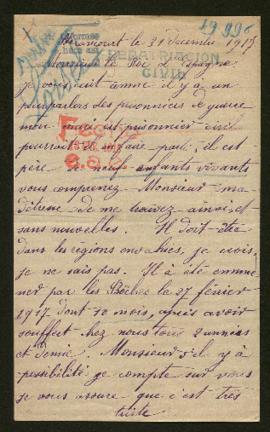 19.996
Informes
hace en
REPATRIACION
CIVIL
le 31 Décembre 1917
Monsieur le Roi d'Espagne.
je vous écrit comme il y a un
pourparlers des prisonniers de guerre
mon mari est prisonnier civil
pourrait il en faire parti; il est
père de neufs enfants vivants
vous comprenez Monsieur ma
détresse de me trouver ainsi et
sans nouvelles. Il doit être
dans les régions envahies je crois,
je ne sais pas. Il à été emme
ner par les Boches le 27 février
1917 dont 10 mois, après avoir
souffert chez nous tous 2 années
et demie. Monsieur s'il y à
possibilité je compte sur vous
je vous assure que c'est très
triste